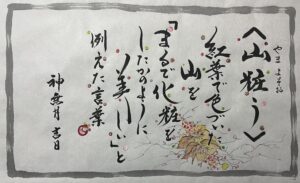 〈山粧う〉
やまよそお
紅葉で色づいた
山を
「まるで化粧を
したかのように
美しい」と
例えた言葉
神無月 吉日